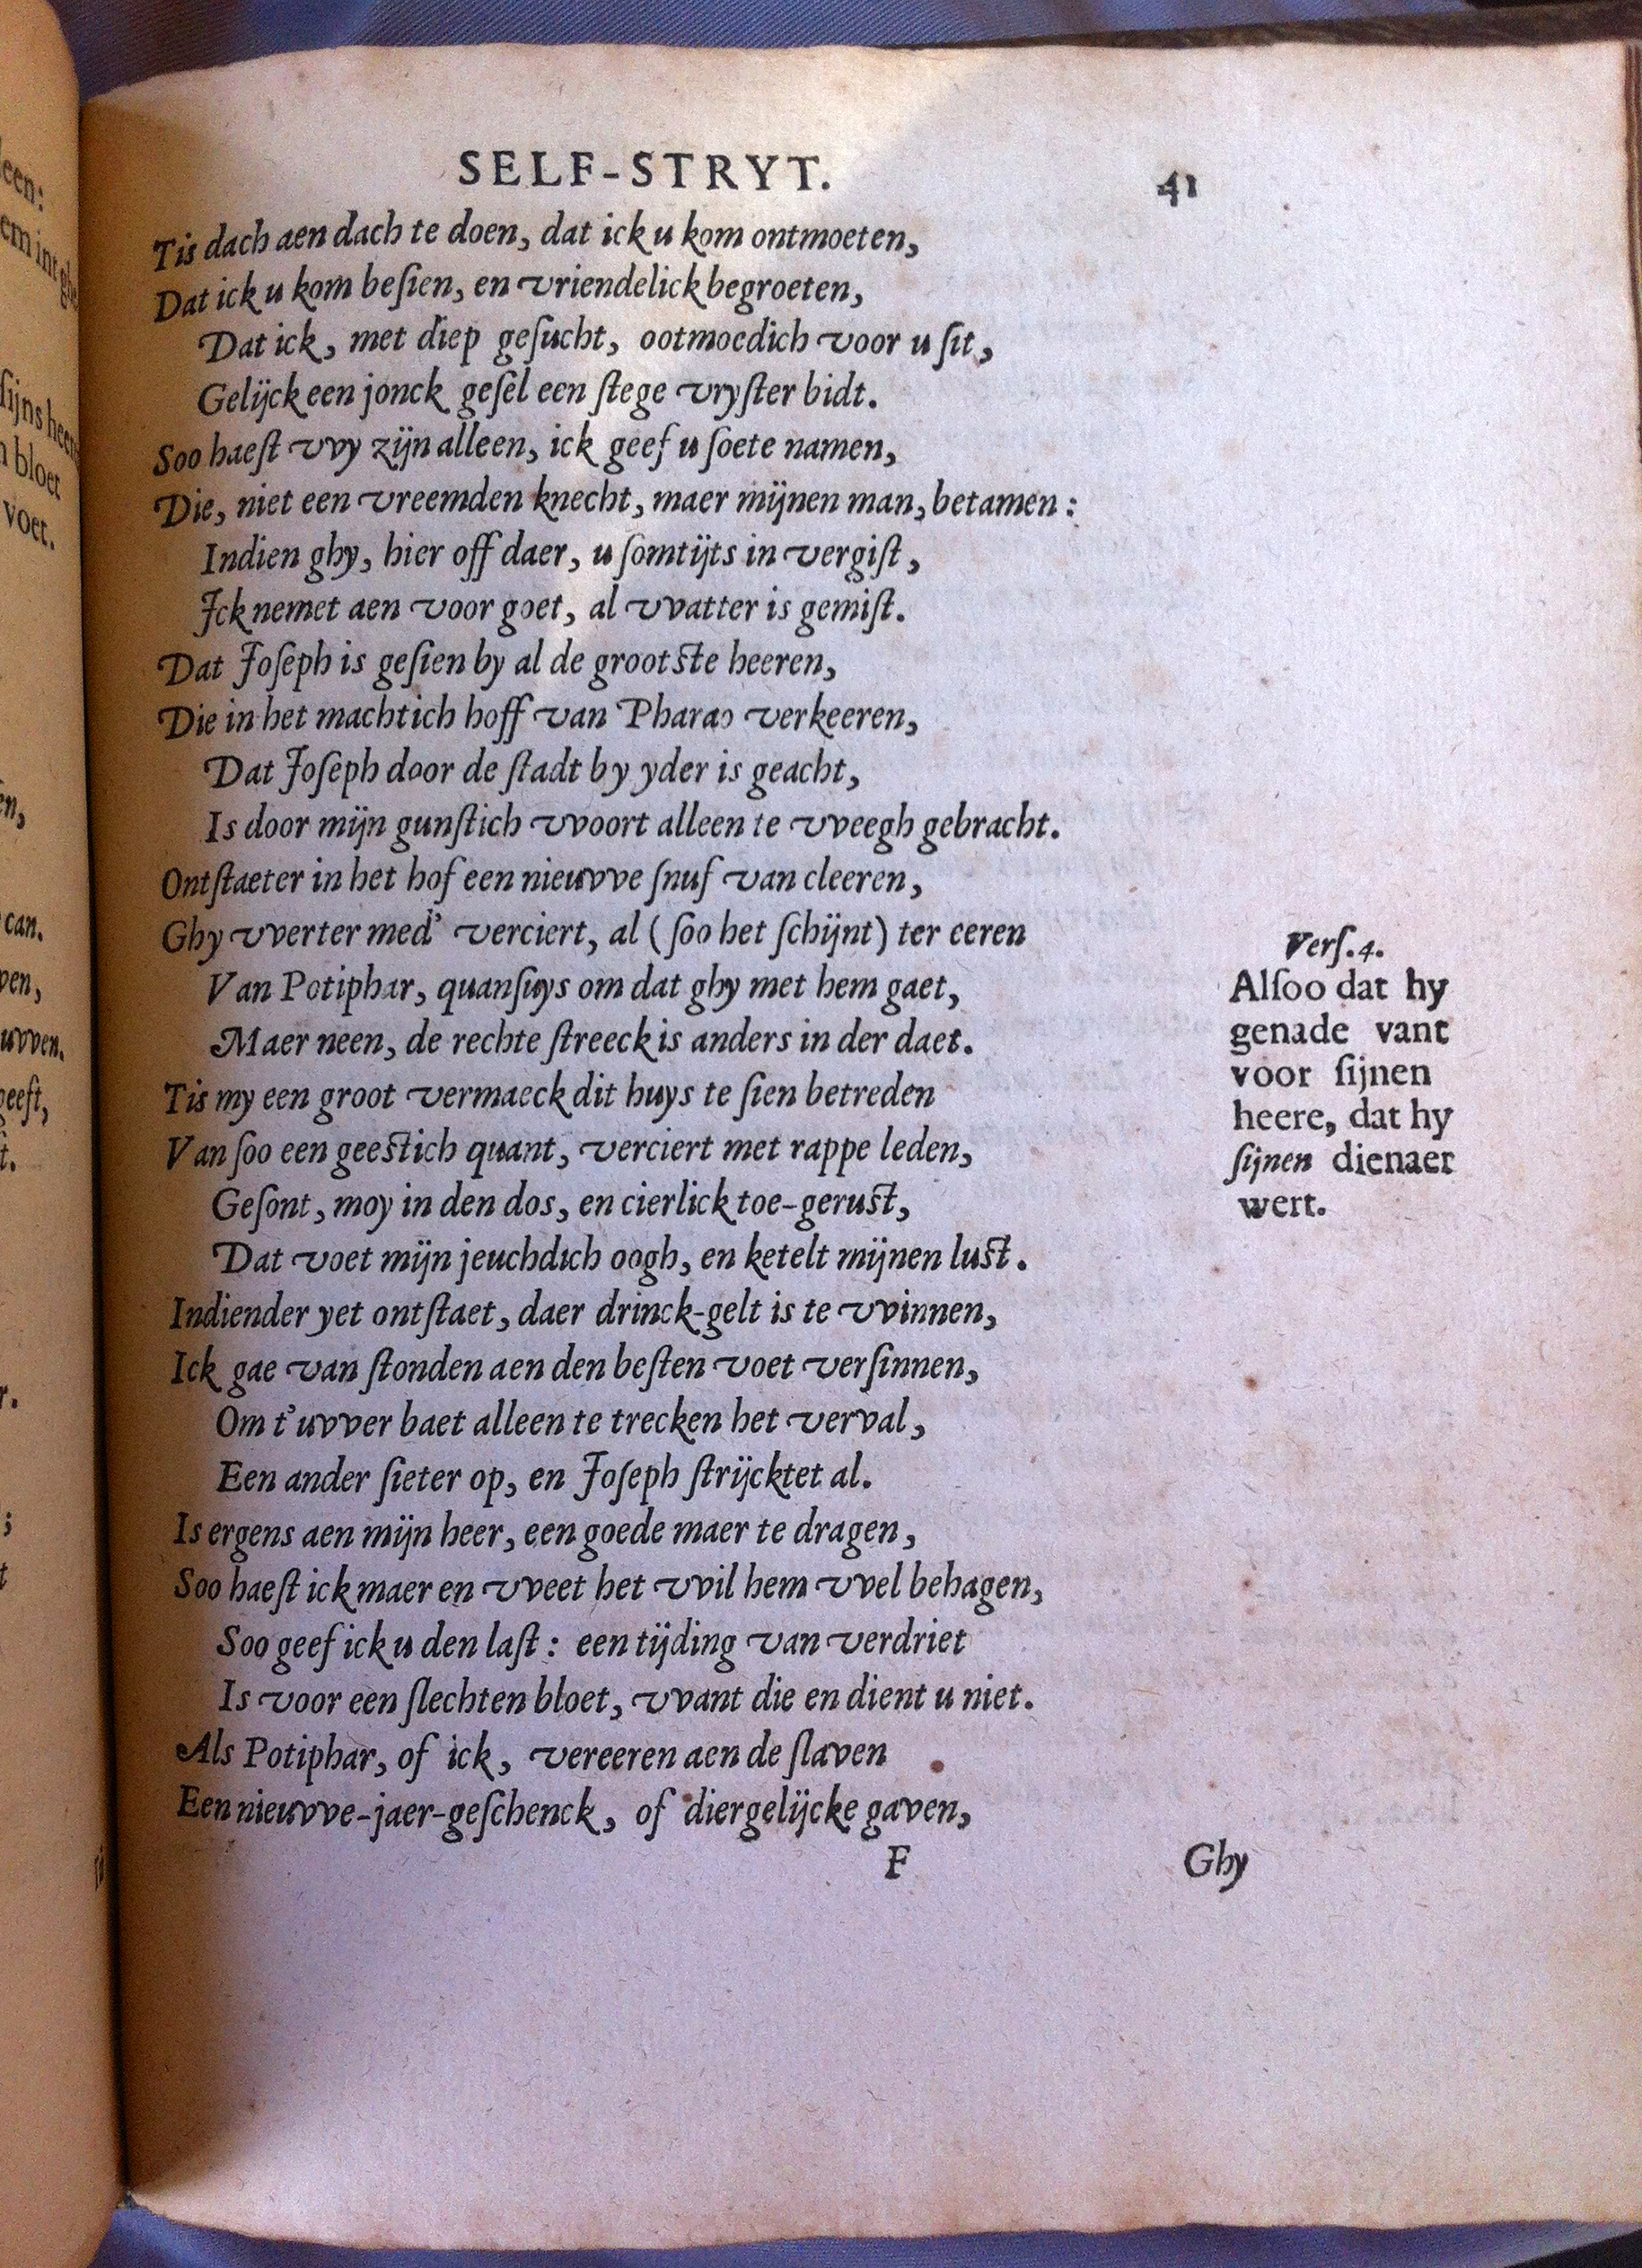 SELF-STRYT.
41
Tis dach aen dach te doen, dat ick u kom ontmoeten,
Dat ick u kom beſien, en vriendelick begroeten,
Dat ick, met diep geſucht, ootmoedich voor u ſit,
Gelijck een jonck geſel een ſtege vryſter bidt.
Soo haeſt vvy zijn alleen, ick geef u ſoete namen,
Die, niet een vreemden knecht, maer mijnen man, betamen:
Indien ghy, hier off daer, u ſomtijts in vergiſt,
Ick nemet aen voor goet, al vvatter is gemiſt.
Dat Joſeph is geſien by al de grootſte heeren,
Die in het machtich hoff van Pharao verkeeren,
Dat Joſeph door de ſtadt by yder is geacht,
Is door mijn gunſtich vvoort alleen te vveegh gebracht.
Ontſtaeter in het hof een nieuvve ſnuf van cleeren,
Ghy vverter med' verciert, al (ſoo het ſchijnt) ter eeren
Van Potiphar, quanſuys om dat ghy met hem gaet,
Maer neen, de rechte ſtreeck is anders in der daet.
Tis my een groot vermaeck dit huys te ſien betreden
Van ſoo een geeſtich quant, verciert met rappe leden,
Geſont, moy in den dos, en cierlick toe-geruſt,
Dat voet mijn jeuchdich oogh, en ketelt mijnen luſt.
Indiender yet ontſtaet, daer drinck-gelt is te vvinnen,
Ick gae van ſtonden aen den beſten voet verſinnen,
Om t'uvver baet alleen te trecken het verval,
Een ander ſieter op, en Joſeph ſtrijcktet al.
Is ergens aen mijn heer, een goede maer te dragen,
Soo haeſt ick maer en vveet het vvil hem vvel behagen,
Soo geef ick u den laſt: een tijding van verdriet
Is voor een ſlechten bloet, vvant die en dient u niet.
Als Potiphar, of ick, vereeren aen de ſlaven
Een nieuvve-jaer-geſchenck, of diergelijcke gaven,
F
Ghy
Verſ. 4.
Alſoo dat hy
genade vant
voor ſijnen
heere, dat hy
ſijnen dienaer
wert.